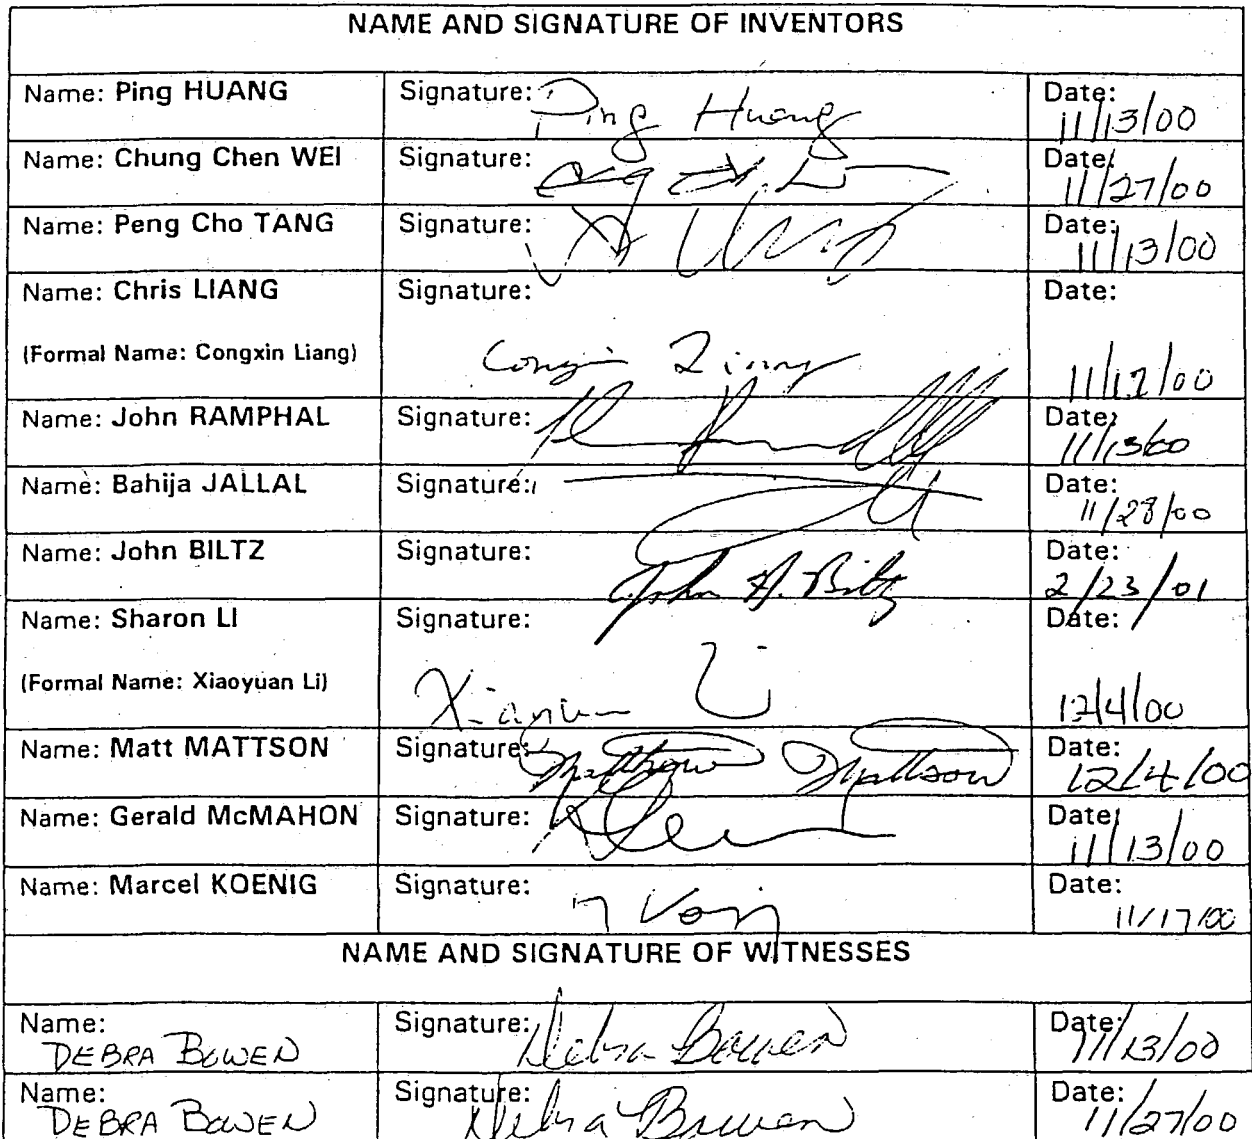 NAME AND SIGNATURE OF INVENTORS
Name: Ping HUANG Signature: Ping Huang Date: 11/13/00
Name: Chung Chen WEI Signature: Date: 11/27/00
Name: Peng Cho TANG Signature: Date: 11/13/00
Name: Chris LIANG Signature: Date:
(Formal Name: Congxin Liang) Congxin Liang 11/12/00
Name: John RAMPHAL Signature: Date: 11/13/00
Name: Bahija JALLAL Signature: Date: 11/28/00
Name: John BILTZ Signature: John A. Biltz Date: 2/23/01
Name: Sharon LI Signature: Date:
(Formal Name: Xiaoyuan Li) Xiaoyuan Li 12/4/00
Name: Matt MATTSON Signature: Matthew Mattson Date: 12/4/00
Name: Gerald McMAHON Signature: Date: 11/13/00
Name: Marcel KOENIG Signature: Date: 11/17/00
NAME AND SIGNATURE OF WITNESSES
Name: Signature: Debra Bowen Date: 11/13/00
DEBRA BOWEN
Name: Signature: Debra Bowen Date: 11/27/00
DEBRA BOWEN